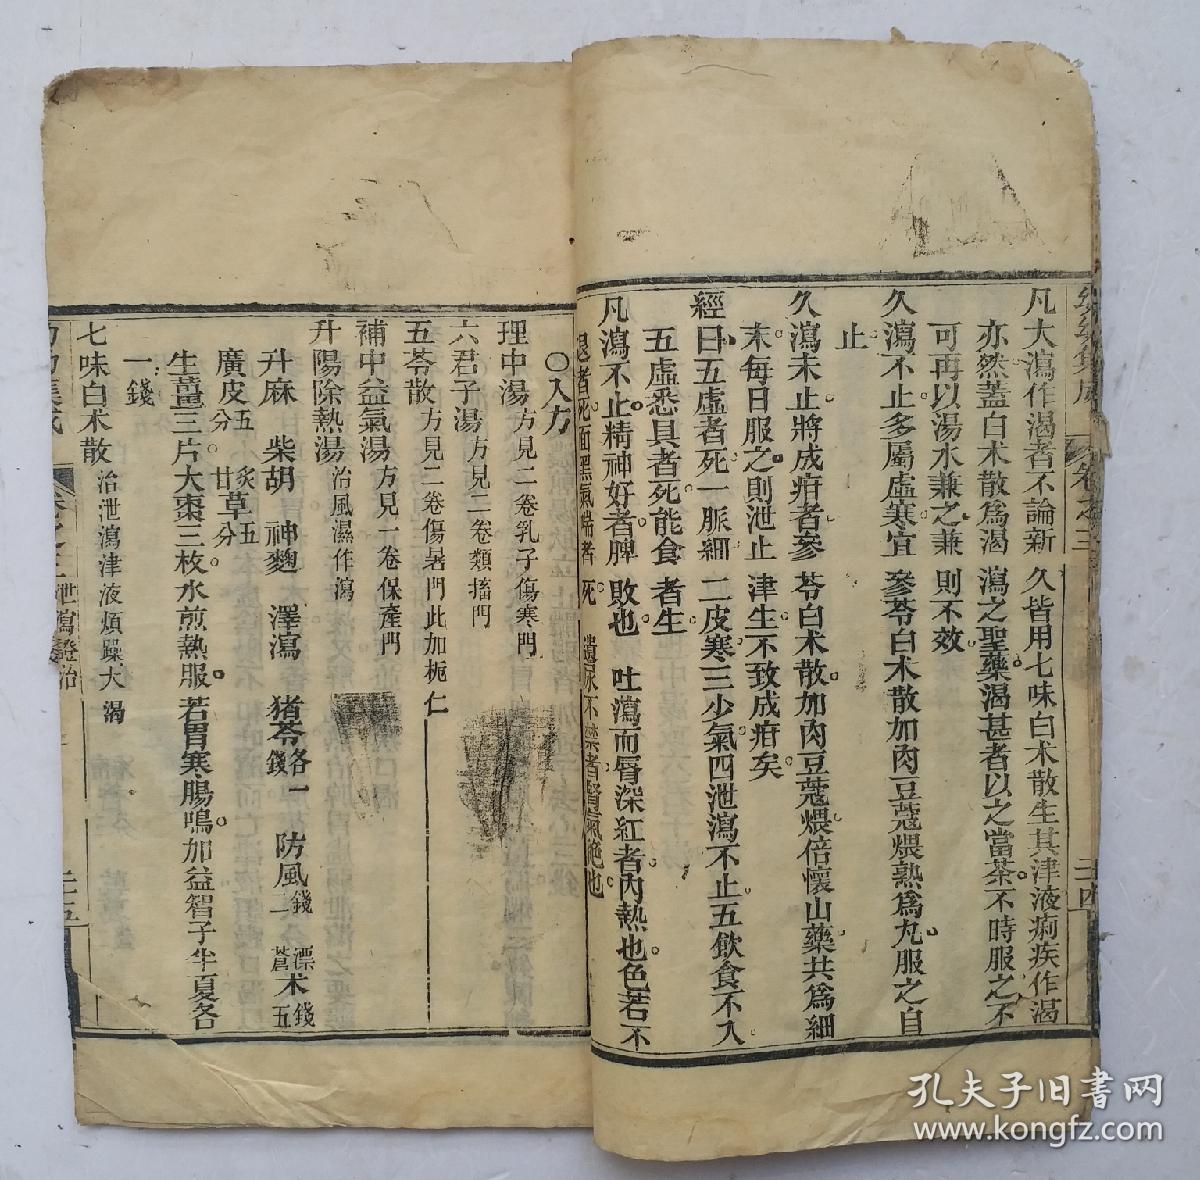 凡大瀉作渴者不論新久皆用七味白术散生其津液痢疾作渴
亦然蓋白术散爲渴瀉之聖藥渴甚者以之當茶不時服之不
可再以湯水兼之兼則不效
久瀉不止多屬虛寒宜參苓白术散加肉豆蔻煨熟爲丸服之自
止
久瀉未止將成疳者參苓白术散加肉豆蔻煨倍懷山藥共爲細
末每日服之則泄止津生不致成疳矣
經曰五虛者死一脈細二皮寒三少氣四泄瀉不止五飲食不入
五虛悉具者死能食者生
凡瀉不止精神好者脾敗也 吐瀉而唇深紅者內熱也色若不
退者死面黑氣喘者死 遺尿不禁者腎氣絕也
卷之三 二十四
〇入方
理中湯 方見二卷乳子傷寒門
六君子湯 方見二卷類搐門
五苓散 方見二卷傷暑門此加梔仁
補中益氣湯 方見一卷保產門
升陽除熱湯 治風濕作瀉
升麻 柴胡 神麯 澤瀉 猪苓各一錢 防風二錢 漂蒼术五錢
廣皮五分 炙甘草五分
生薑三片大棗三枚水煎熱服若胃寒腸鳴加益智子半夏各
一錢
七味白术散 治泄瀉津液煩躁大渴
幼幼集成 卷之三 泄瀉證治 二十五
孔夫子旧书网
www.kongfz.com